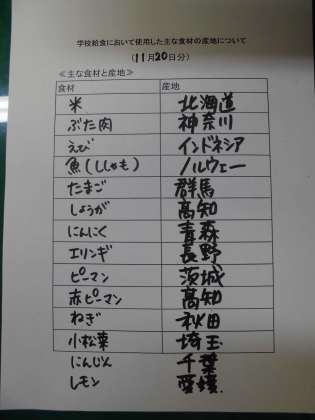 学校給食において使用した主な食材の産地について
(11月20日分)
≪主な食材と産地≫
食材 産地
米 北海道
ぶた肉 神奈川
えび インドネシア
魚(ししゃも) ノルウェー
たまご 群馬
しょうが 高知
にんにく 青森
エリンギ 長野
ピーマン 茨城
赤ピーマン 高知
ねぎ 秋田
小松菜 埼玉
にんじん 千葉
レモン 愛媛